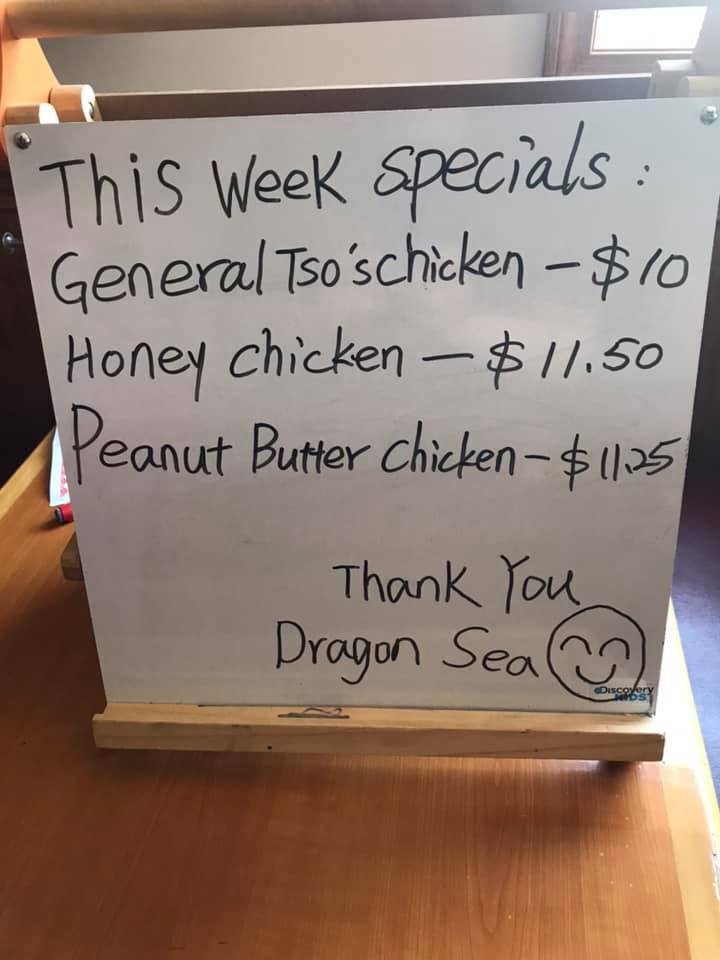 This Week Specials :
General Tso's chicken - $10
Honey chicken - $11.50
Peanut Butter chicken - $11.25
Thank You
Dragon Sea
Discovery
KIDS